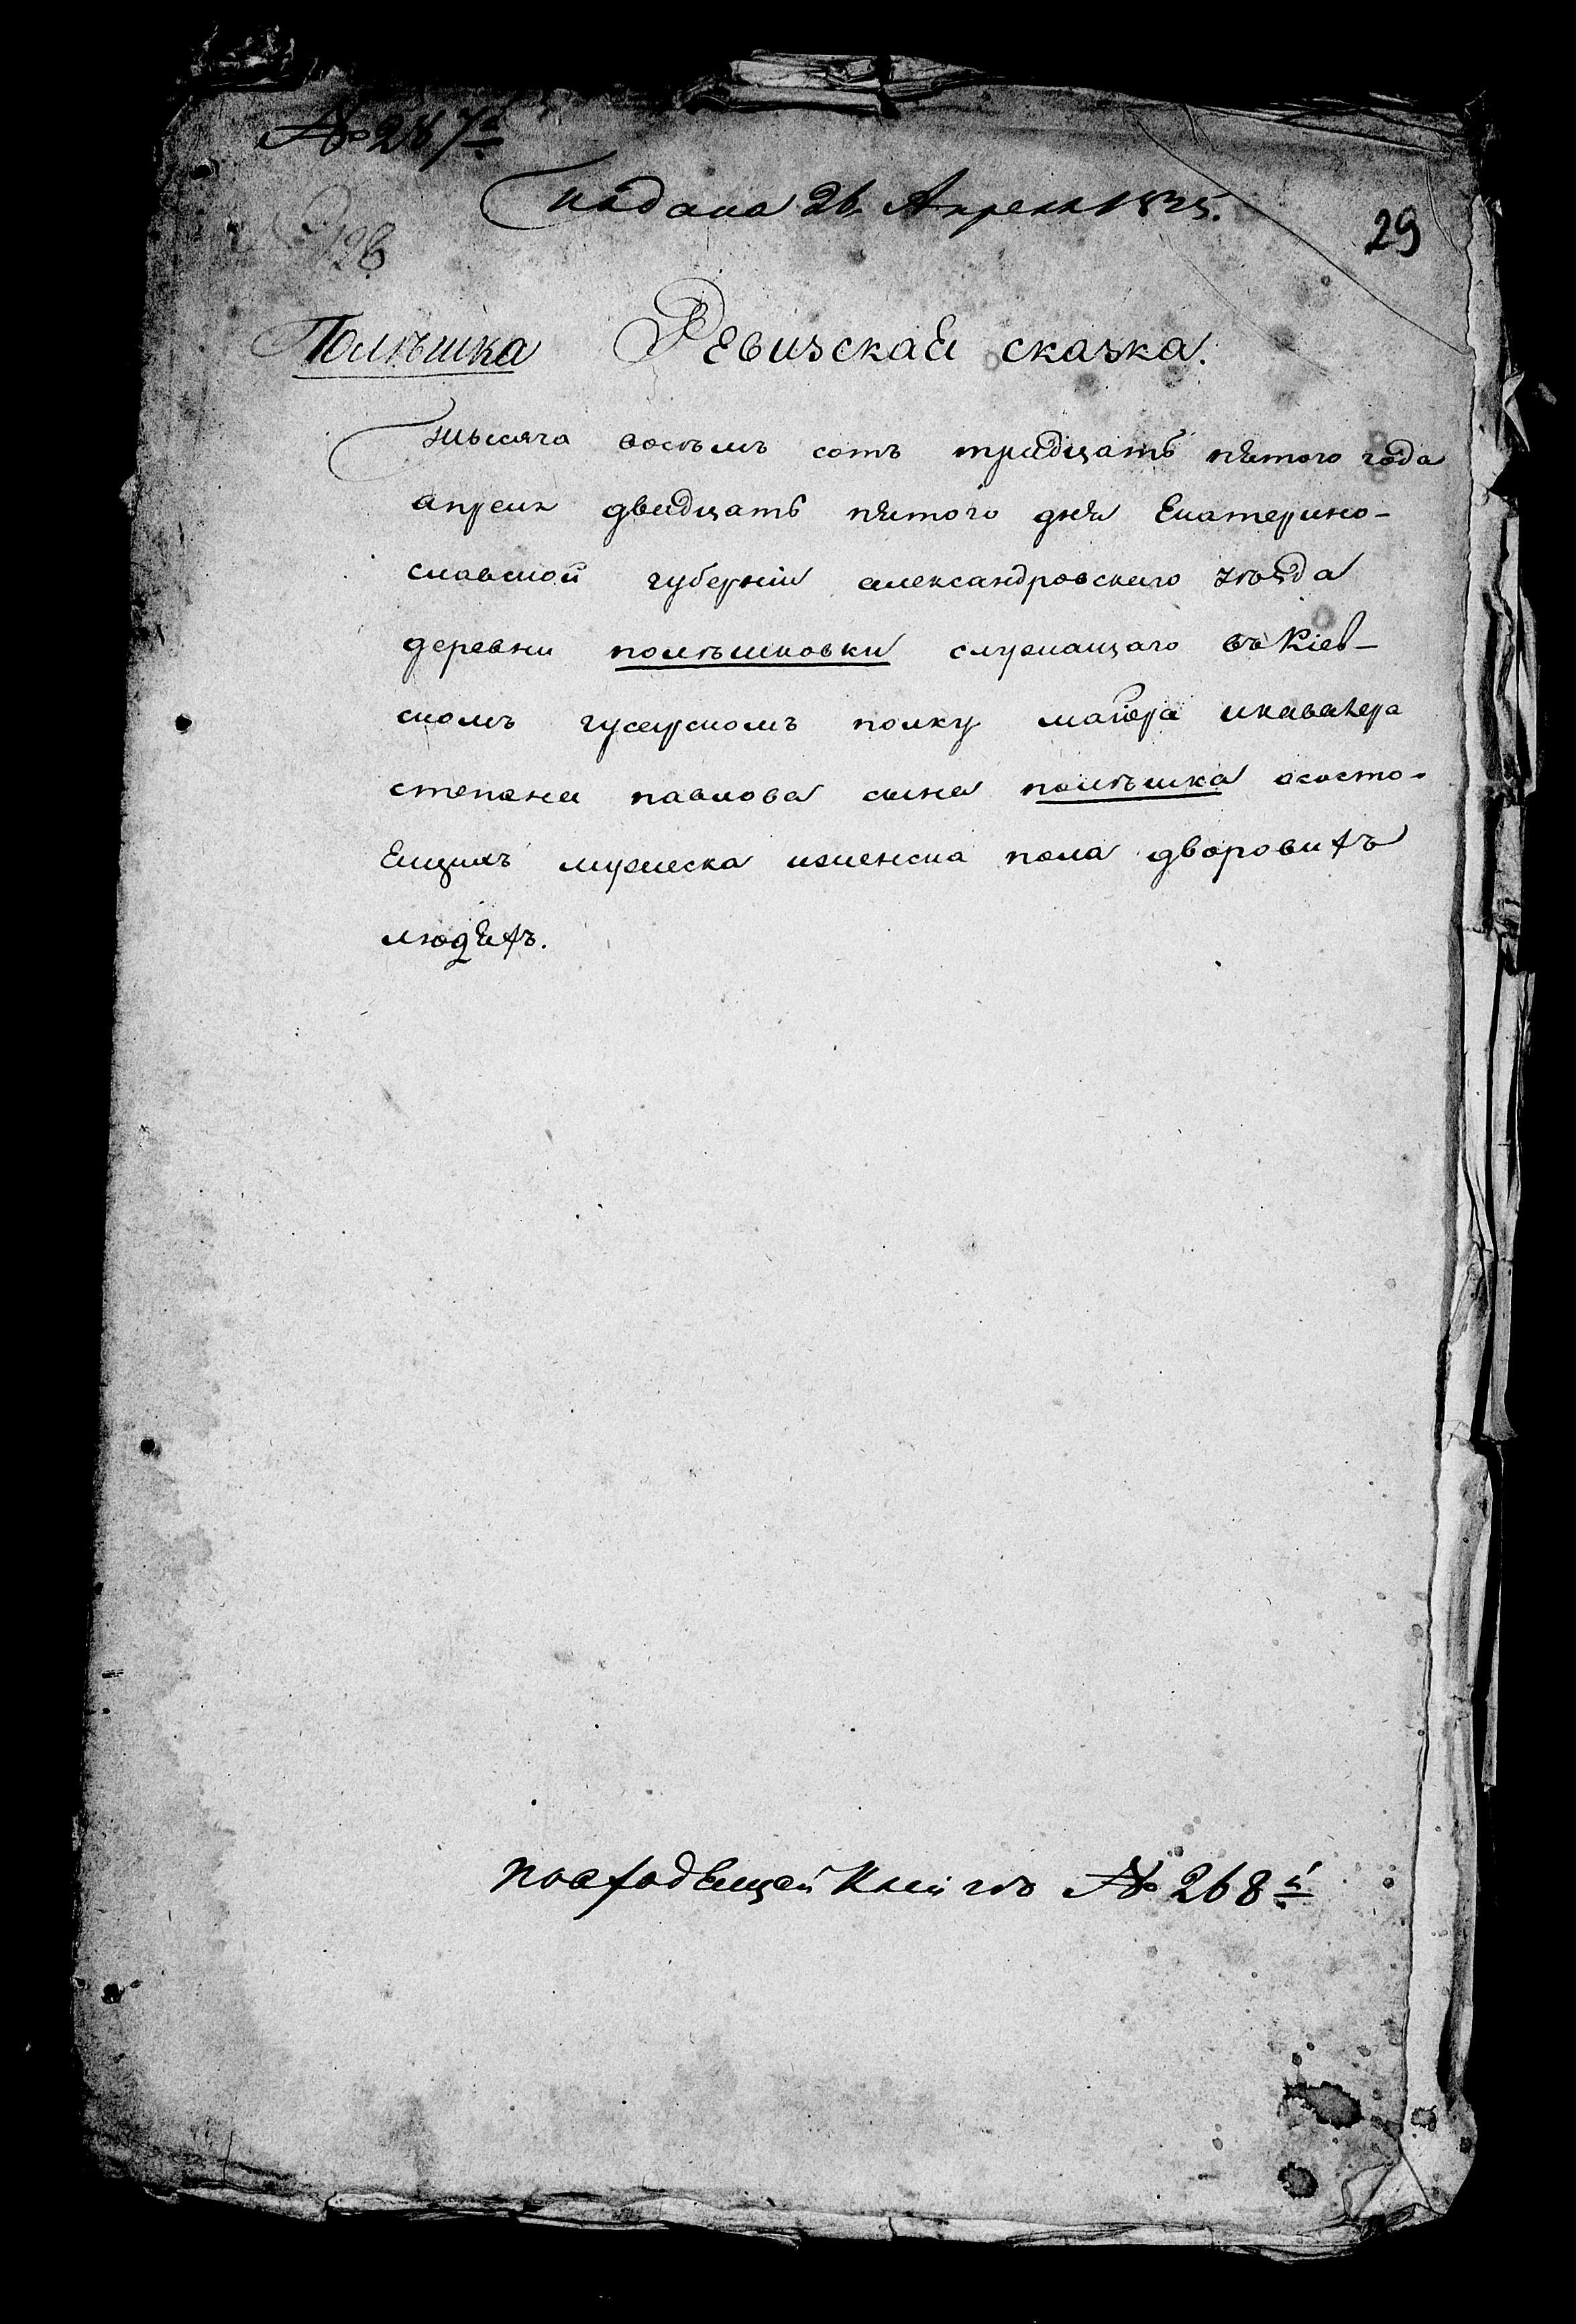 № 267й
подана 26. Апреля 1835.
29
Полѣшка Ревизская сказка.
Тысяча восемь сотъ тридцать пятого года
апреля двадцать пятого дня Екатерино-
славской губерніи александровскаго уѣзда
деревни полѣшковки служащаго въ Кіев-
скомъ гусарскомъ полку маіора икавалера
степана павлова сына полѣшка ососто-
ящихъ мужеска иженска пола дворовихъ
людяхъ.
повходящей Книгѣ № 268й